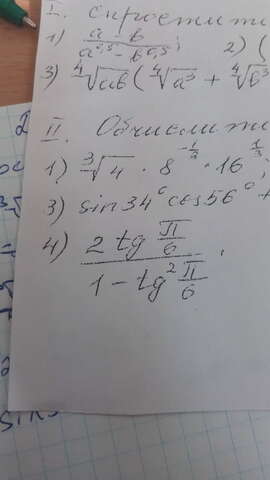 I. Спростити
1) (a - b)/(a^0,5 - b^0,5); 2) (
3) ⁴√ab (⁴√a³ + ⁴√b³
II. Обчислити
1) ³√4 · 8^(-1/3) · 16^(1/3);
3) sin 34° cos 56° +
4) (2 tg π/6)/(1 - tg² π/6).